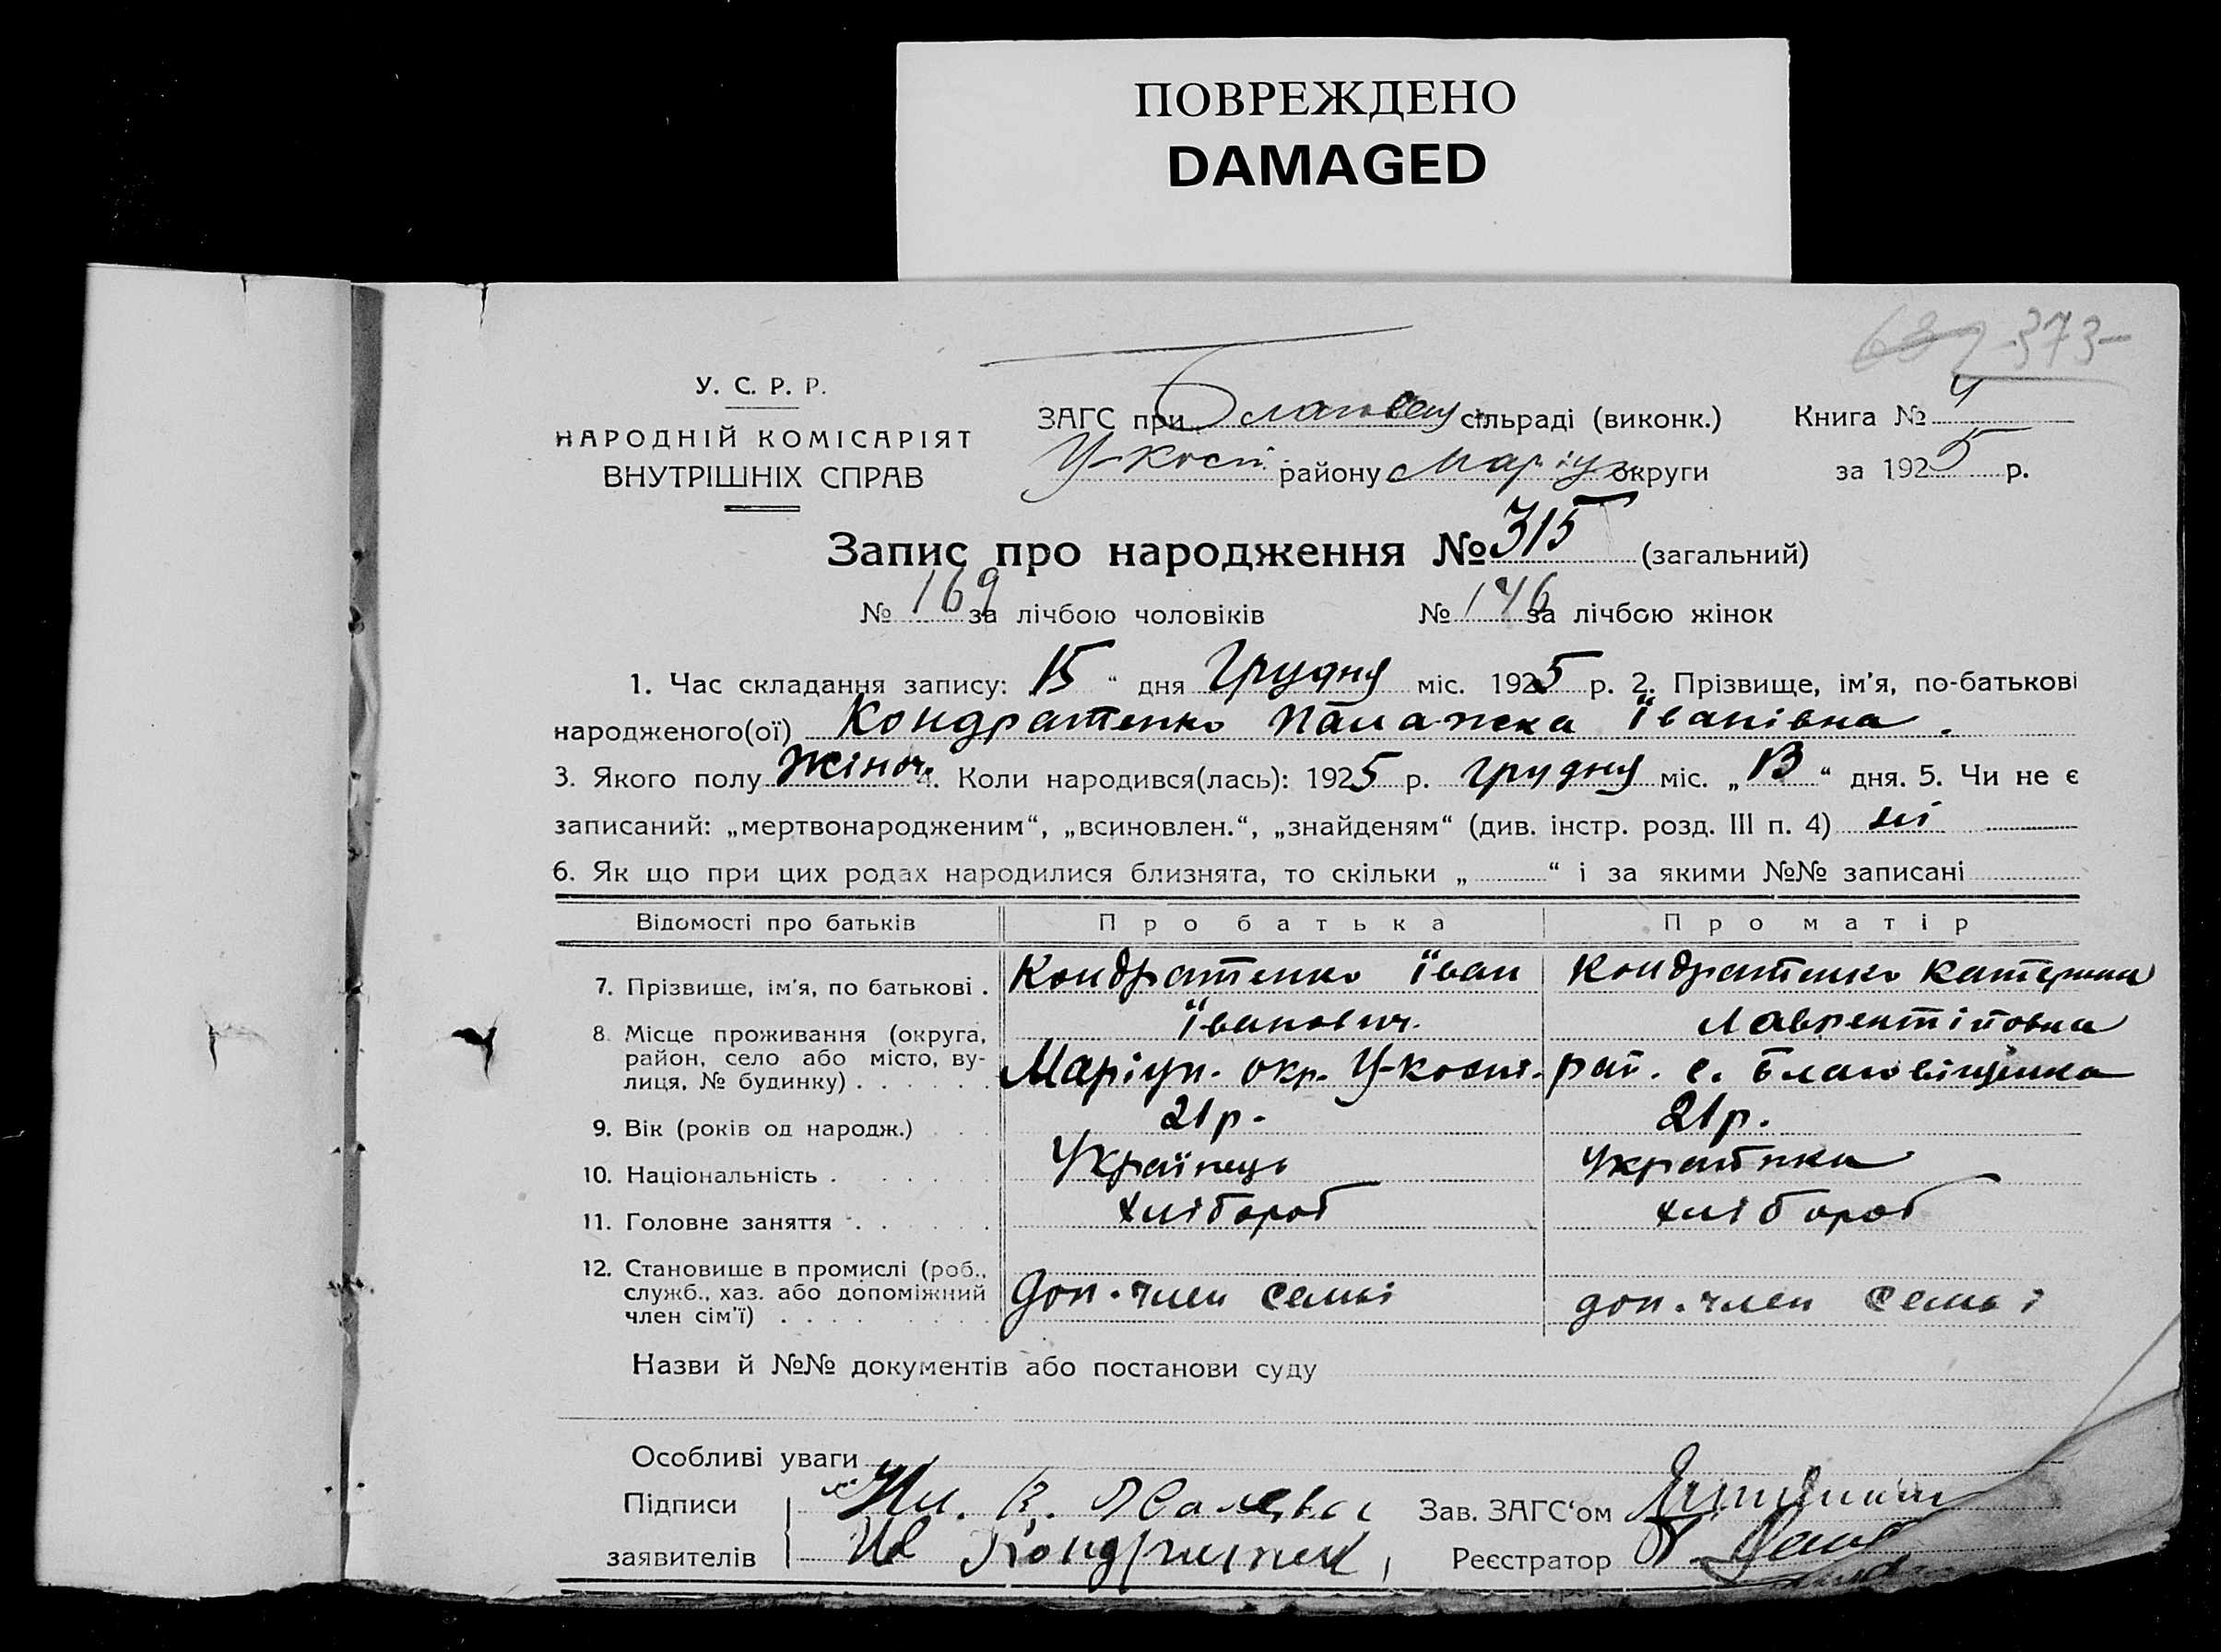 ПОВРЕЖДЕНО
DAMAGED
373
У. С. Р. Р.
НАРОДНІЙ КОМІСАРІЯТ
ВНУТРІШНІХ СПРАВ
ЗАГС при сільраді (виконк.) Книга № 4
У-Кост. району Маріуп округи за 1925 р.
Запис про народження № 315 (загальний)
№ 169 за лічбою чоловіків № 146 за лічбою жінок
1. Час складання запису: 15 “ дня Грудня міс. 1925 р. 2. Прізвище, ім'я, по-батькові
народженого(ої) Кондратенко Палажка Їванівна.
3. Якого полу жіноч. 4. Коли народився(лась): 1925 р. грудня міс. „ 13 “ дня. 5. Чи не є
записаний: „мертвонародженим“, „всиновлен.“, „знайденям“ (див. інстр. розд. III п. 4) ні
6. Як що при цих родах народилися близнята, то скільки „ “ і за якими №№ записані
Відомості про батьків Про батька Про матір
7. Прізвище, ім'я, по батькові . Кондратенко Їван Їванович. Кондратенко Катерина Лаврентіївна
8. Місце проживання (округа,
район, село або місто, ву-
лиця, № будинку) . . . . . . Маріуп. окр. У-Кост. рай. с. Благовіщенка
9. Вік (років од народж.) . . . 21 р. 21 р.
10. Національність . . . . . . Українець Українка
11. Головне заняття . . . . . . хлібороб хлібороб
12. Становище в промислі (роб.,
служб., хаз. або допоміжний
член сім'ї) . . . . . . . . Доп. член семьі доп. член семьі
Назви й №№ документів або постанови суду
Особливі уваги
Підписи Зав. ЗАГС‘ом
заявителів Реєстратор